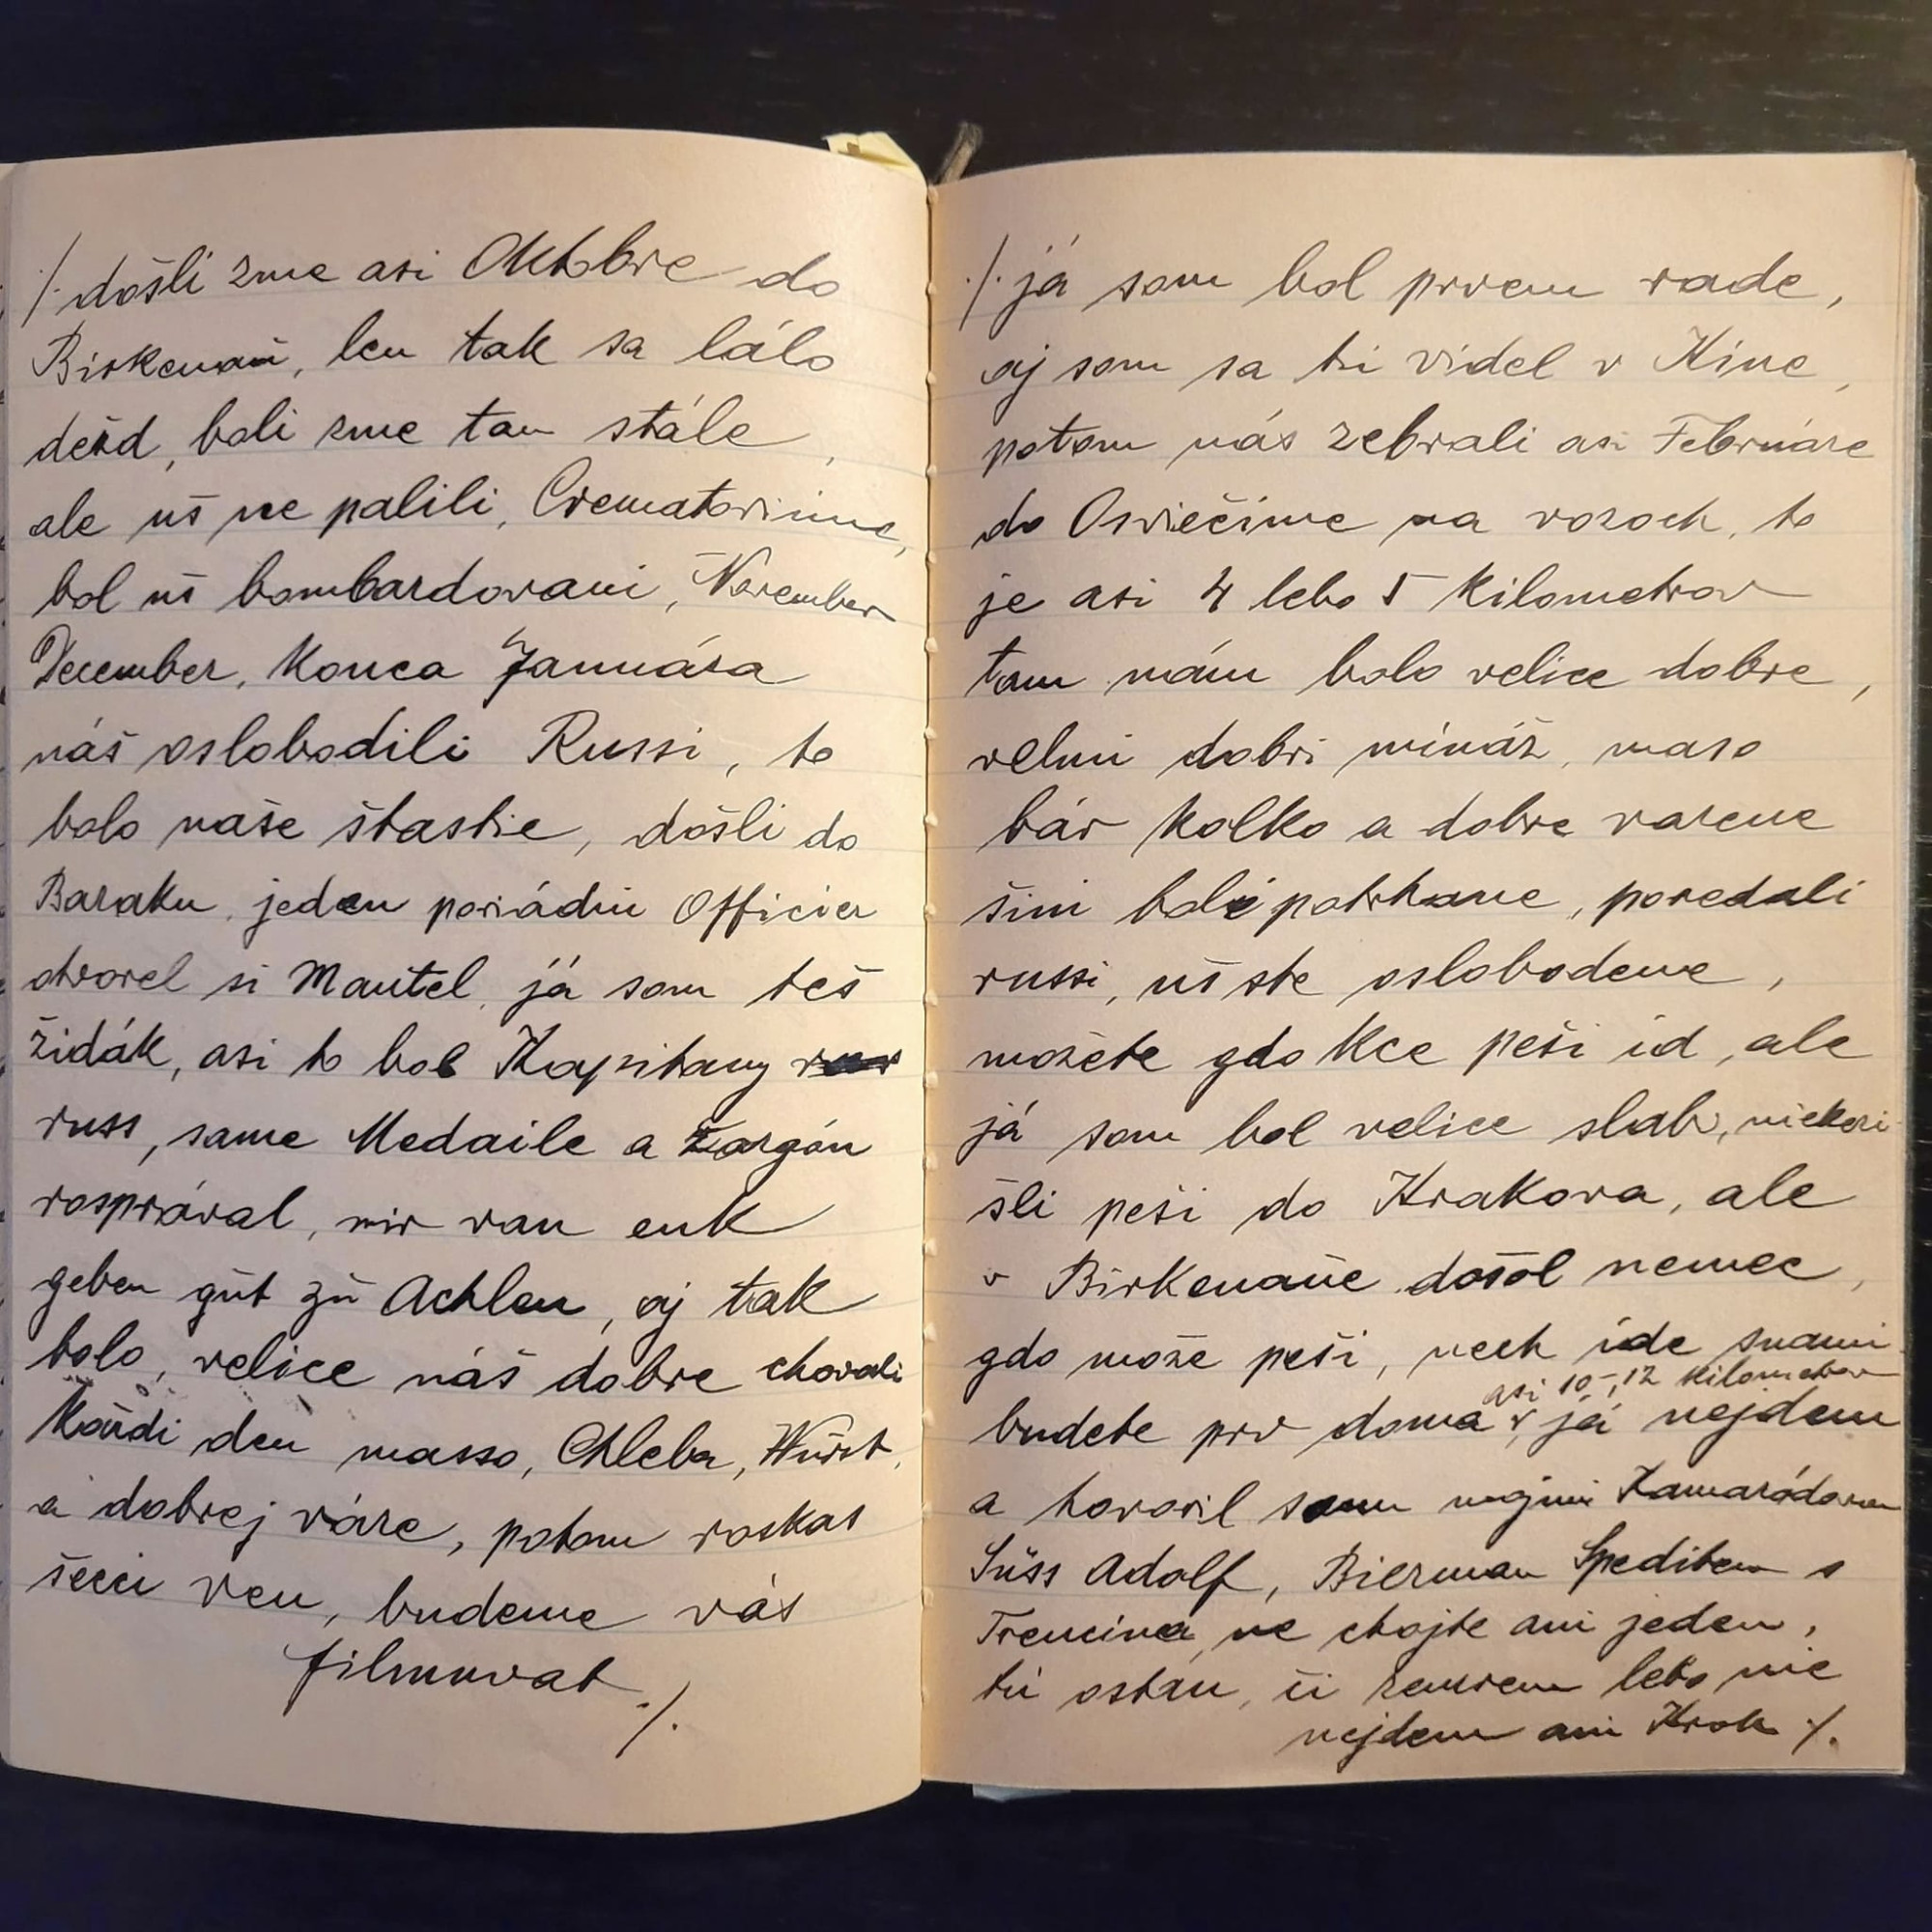 /. došli zme asi Oktobre do
Birkenaŭ, len tak sa lálo
dešd, boli zme tam stále,
ale uš ne palili, Crematoriume,
bol uš bombardovani, November
December, Konca Januára
náš oslobodili Russi, to
bolo naše štastie, došli do
Baraku, jeden poriádni Officier
otvorel si Mantel, já som teš
židák, asi to bol Kapitany
russ, same Medaile a Žargón
rosprával, mir van enk
geben gŭt zŭ Achlen, aj tak
bolo, velice náš dobre chovali
Každi den masso, Chleba, Wŭrst,
a dobrej váre, potom roskas
šecci ven, budeme vás
filmuvat ./.
./. já som bol prvem rade,
aj som sa tu videl v Kine,
potom nás zebrali asi Februáre
do Osviečime na vozoch, to
je asi 4 lebo 5 Kilometrov
tam nám bolo velice dobre,
velmi dobri mináž, maso
bár kolko a dobre varene
šini boli potrhane, povedali
russi, uš ste oslobodene,
možete gdo Kce peši id, ale
já som bol velice slabi, niekeri
šli peši do Krakova, ale
v Birkenaŭe došol nemec,
gdo može peši, nech ide snami
asi 10-,12 kilometrov
budete prv doma, já nejdem
a hovoril som mojmi Kamarádom
Süss Adolf, Bierman Spediter s
Trencina, ne chojte ani jeden,
tu ostan, či zemrem lebo nie
nejdem ani Krok ./.